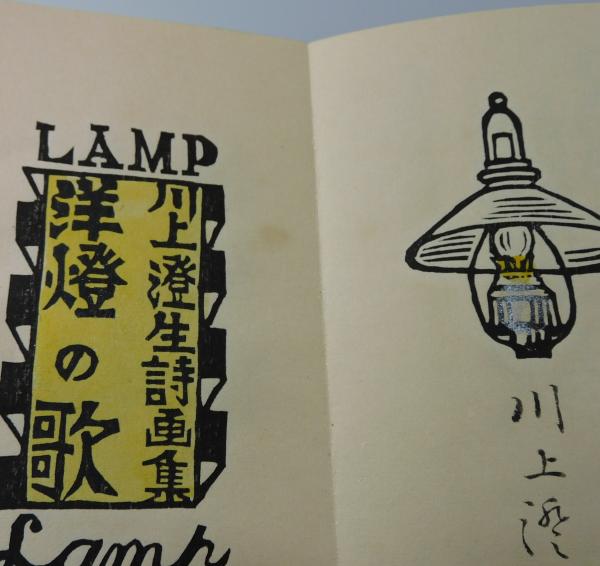 LAMP
川上澄生詩画集
洋燈の歌
Lamp
川上澄